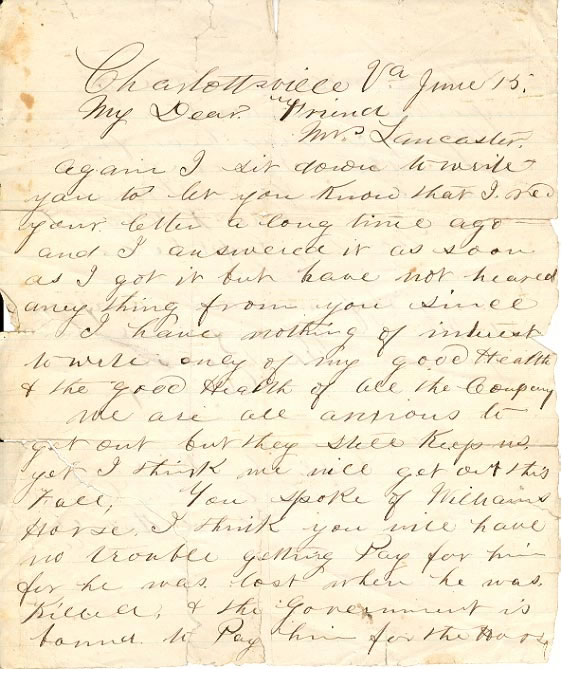 Charlottsville Va June 15.
My Dear Friend
Mrs Lancaster,
again I sit down to write
you to let you Know that I. red
your letter a long time ago
and I answered it as soon
as I got it but have not heared
aney thing from you since
I have nothing of interest
to write only of my good Health
& the good Health of all the Company
We are all anxious to
get out but they still Keep us
yet I think we will get out this
Fall, You spoke of Williams
Horse. I think you will have
no trouble getting Pay for him
for he was lost when he was.
Killed, & the Government is
bound to Pay him for the Horse